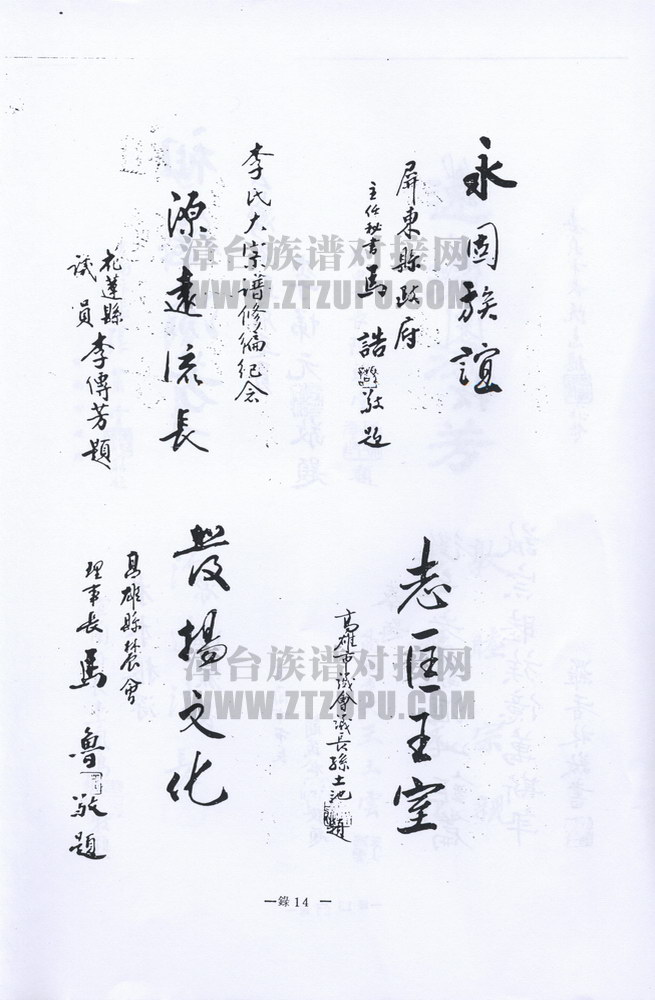 永固族誼
屏東縣政府
主任秘書馬誥敬題
李氏大宗譜修編紀念
源遠流長
花蓮縣
議員李傳芳題
志匡王室
高雄市議會議長孫土池題
發揚文化
高雄縣農會
理事長馬魯敬題
漳台族谱对接网
WWW.ZTZUPU.COM
漳台族谱对接网
WWW.ZTZUPU.COM
—錄14—